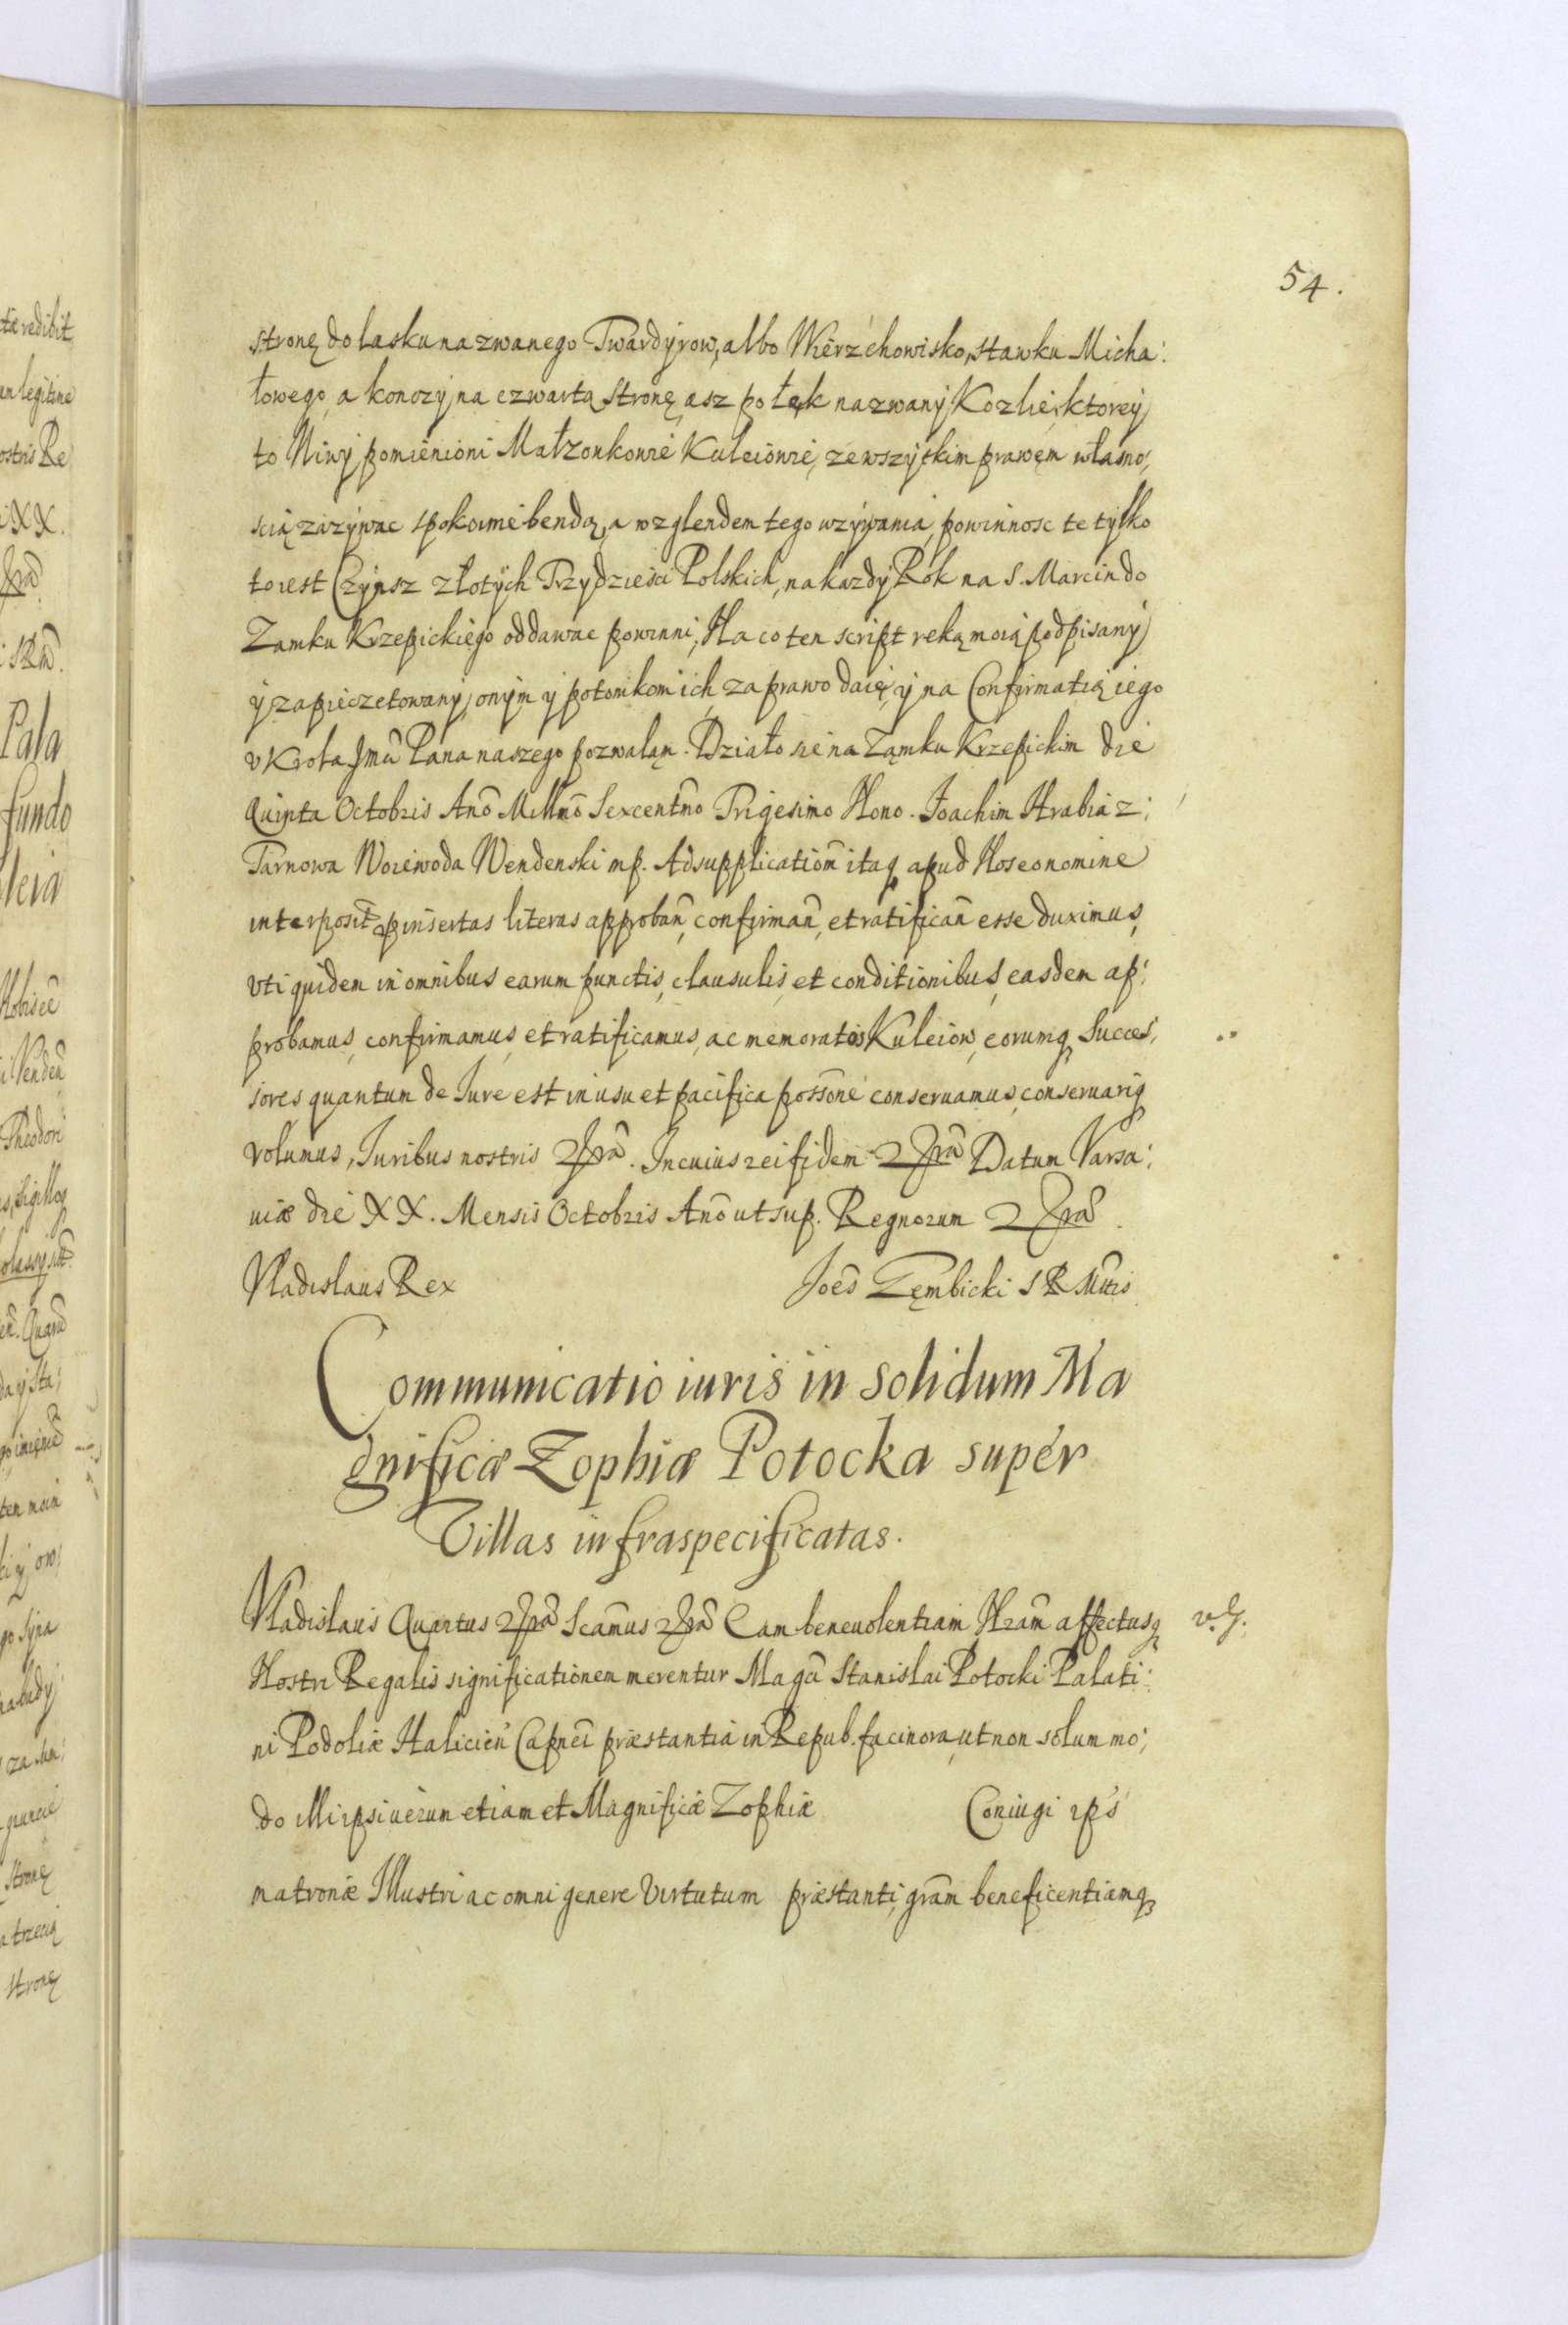 54.
stronę do lasku nazwanego Twardyrow, albo Wierzchowisko, stawku Micha:
łowego, a konczy na czwartą stronę asz po łęk nazwany Kozlie, ktorey
to Niwy pomienioni Małzonkowie Kuleiowie, ze wszytkim prawem własno,
scią zazywac spokoinie bendą, a wzglendem tego uzywania, powinnosc te tylko
to iest Czynsz złotych Trzydziesci Polskich, na kazdy Rok na S. Marcin do
Zamku Krzepickiego oddawac powinni, Na co ten script reką moią podpisany
y zapieczetowany, onym y potomkom ich za prawo daię, y na Confirmatią iego
v Krola Jmci Pana naszego pozwaląm. Działo sie na Zamku Krzepickim die
Quinta Octobris Anõ Millmõ Sexcentmõ Trigesimo Nono. Joachim Hrabia z:
Tarnowa Woiewoda Wendenski mp. Ad supplicationẽ itaq apud Nos eo nomine
interposit̃ p̃insertas literas approbañ, confirmañ, et ratificañ esse duximus,
vti quidem in omnibus earum punctis, clausulis, et conditionibus, easdem ap:
probamus, confirmamus, et ratificamus, ac memoratos Kuleiow, eorumq Succes,
sores quantum de Jure est in usu et pacifica possõne conseruamus, conseruariq
volumus, Juribus nostris &prã. In cuius rei fidem &prã Datum Varsa:
uiæ die XX. Mensis Octobris Anõ ut sup. Regnorum &prã.
Vladislaus Rex Joẽs Zembicki S R Mttis
Communicatio iuris in solidum Ma
gnificæ Zophiæ Potocka super
Villas infraspecificatas.
Vladislaus Quartus &prã Scamus &prã Eam beneuolentiam Nrãm affectusq
v. g.
Nostri Regalis significationem merentur Magci Stanislai Potocki Palati:
ni Podoliæ Halicieñ Capnei præstantia in Repub. facinora, ut non solum mo:
do illi ipsi uerum etiam et Magnificæ Zophiæ Coniugi ips
matronæ Illustri ac omni genere Virtutum præstanti, grãm beneficentiamq